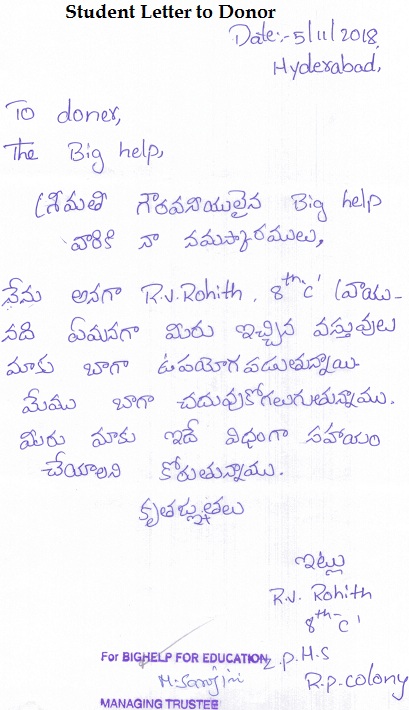 Student Letter to Donor
Date:- 5/11/2018,
Hyderabad,
To doner,
The Big help,
శ్రీమతి గౌరవనీయులైన Big help
వారికి నా నమస్కారములు,
నేను అనగా R.V.Rohith, 8th 'c' వ్రాయు-
నది ఏమనగా మీరు ఇచ్చిన వస్తువులు
మాకు బాగా ఉపయోగపడుతున్నాయి.
మేము బాగా చదువుకోగలుగుతున్నాము.
మీరు మాకు ఇదే విధంగా సహాయం
చేయాలని కోరుతున్నాము.
కృతజ్ఞతలు
ఇట్లు
R.V. Rohith
8th 'c'
Z.p.H.S
R.p.colony
For BIGHELP FOR EDUCATION
MANAGING TRUSTEE